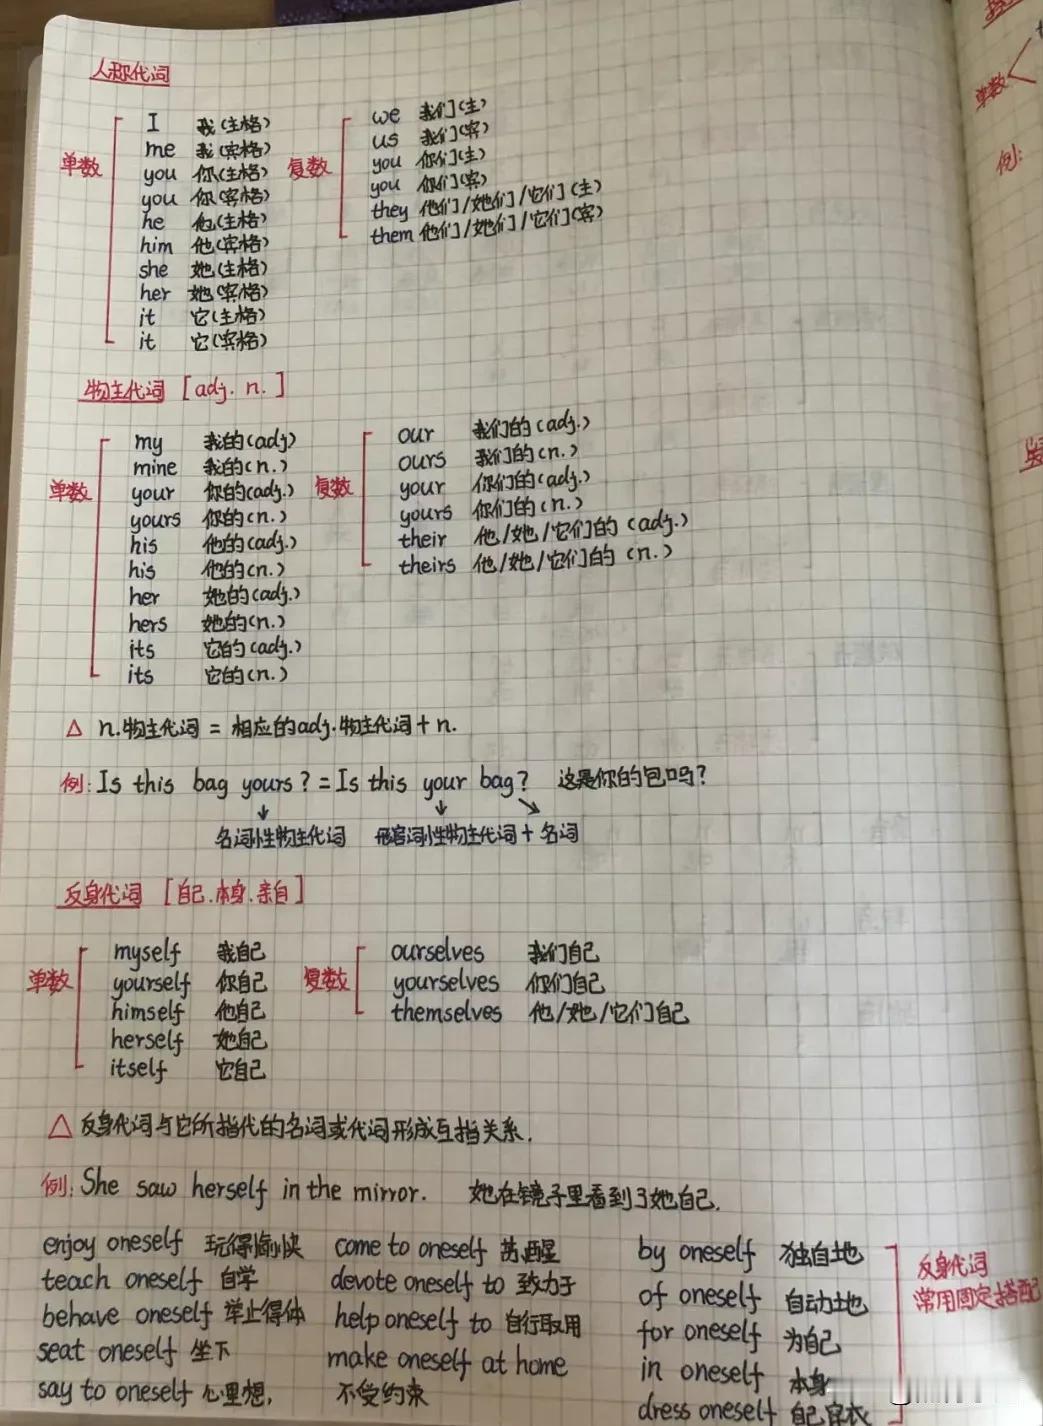 人称代词
单数
I 我(主格)
me 我(宾格)
you 你(主格)
you 你(宾格)
he 他(主格)
him 他(宾格)
she 她(主格)
her 她(宾格)
it 它(主格)
it 它(宾格)
复数
we 我们(主)
us 我们(宾)
you 你们(主)
you 你们(宾)
they 他们/她们/它们(主)
them 他们/她们/它们(宾)
物主代词 [adj. n.]
单数
my 我的(adj)
mine 我的(n.)
your 你的(adj.)
yours 你的(n.)
his 他的(adj.)
his 他的(n.)
her 她的(adj.)
hers 她的(n.)
its 它的(adj.)
its 它的(n.)
复数
our 我们的(adj.)
ours 我们的(n.)
your 你们的(adj.)
yours 你们的(n.)
their 他/她/它们的(adj.)
theirs 他/她/它们的(n.)
△ n.物主代词 = 相应的adj.物主代词+n.
例: Is this bag yours? = Is this your bag? 这是你的包吗?
名词性物主代词 形容词性物主代词+名词
反身代词 [自己.本身.亲自]
单数
myself 我自己
yourself 你自己
himself 他自己
herself 她自己
itself 它自己
复数
ourselves 我们自己
yourselves 你们自己
themselves 他/她/它们自己
△ 反身代词与它所指代的名词或代词形成互指关系.
例: She saw herself in the mirror. 她在镜子里看到了她自己.
enjoy oneself 玩得愉快
teach oneself 自学
behave oneself 举止得体
seat oneself 坐下
say to oneself 心里想,
come to oneself 苏醒
devote oneself to 致力于
help oneself to 自行取用
make oneself at home
不受约束
by oneself 独自地
of oneself 自动地
for oneself 为自己
in oneself 本身
dress oneself 自己穿衣
反身代词
常用固定搭配
单数
例: